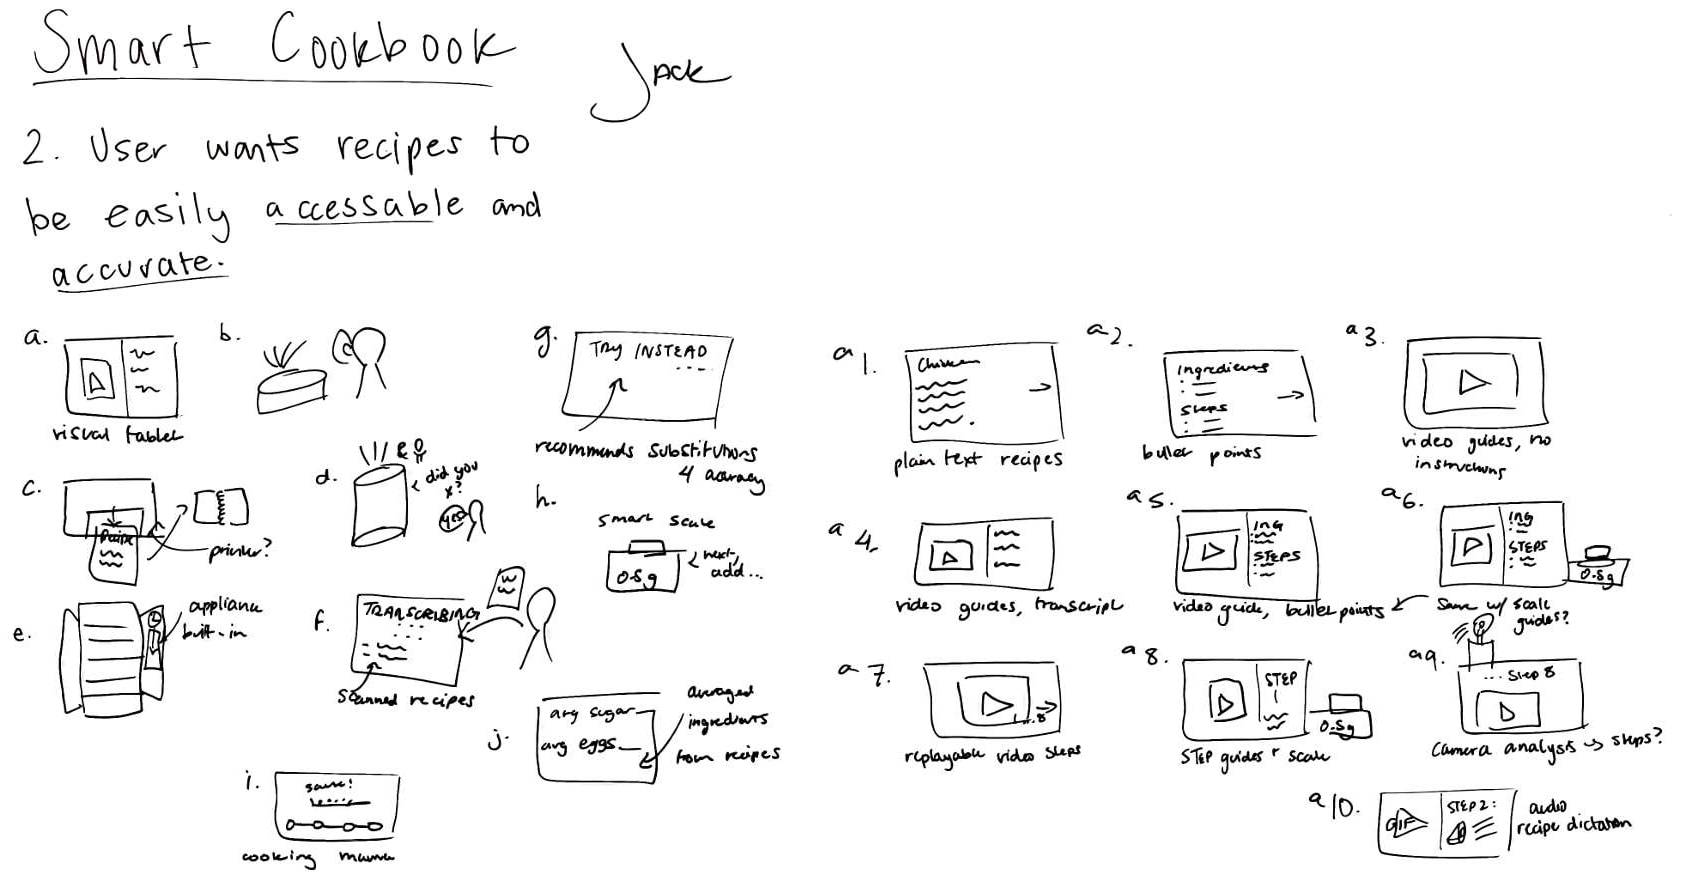 Smart Cookbook
Jack
2. User wants recipes to
be easily accessable and
accurate.
a.
visual tablet
b.
c.
Recipe
printer?
d.
did you
x?
yes
e.
appliance
built-in
f.
TRANSCRIBING
...
scanned recipes
g.
TRY INSTEAD
...
recommends substitutions
4 accuracy
h.
smart scale
0.5g
next,
add...
i.
cooking mama
j.
avg sugar
avg eggs
averaged
ingredients
from recipes
a1.
Chicken
plain text recipes
a2.
Ingredients
Steps
bullet points
a3.
video guides, no
instructions
a4.
video guides, transcript
a5.
ING
STEPS
video guide, bullet points
a6.
ING
STEPS
0.5g
Same w/ scale
guides?
a7.
1...8
replayable video steps
a8.
STEP
1
0.5g
STEP guides + scale
a9.
... Step 8
camera analysis → steps?
a10.
GIF
STEP 2:
audio
recipe dictation